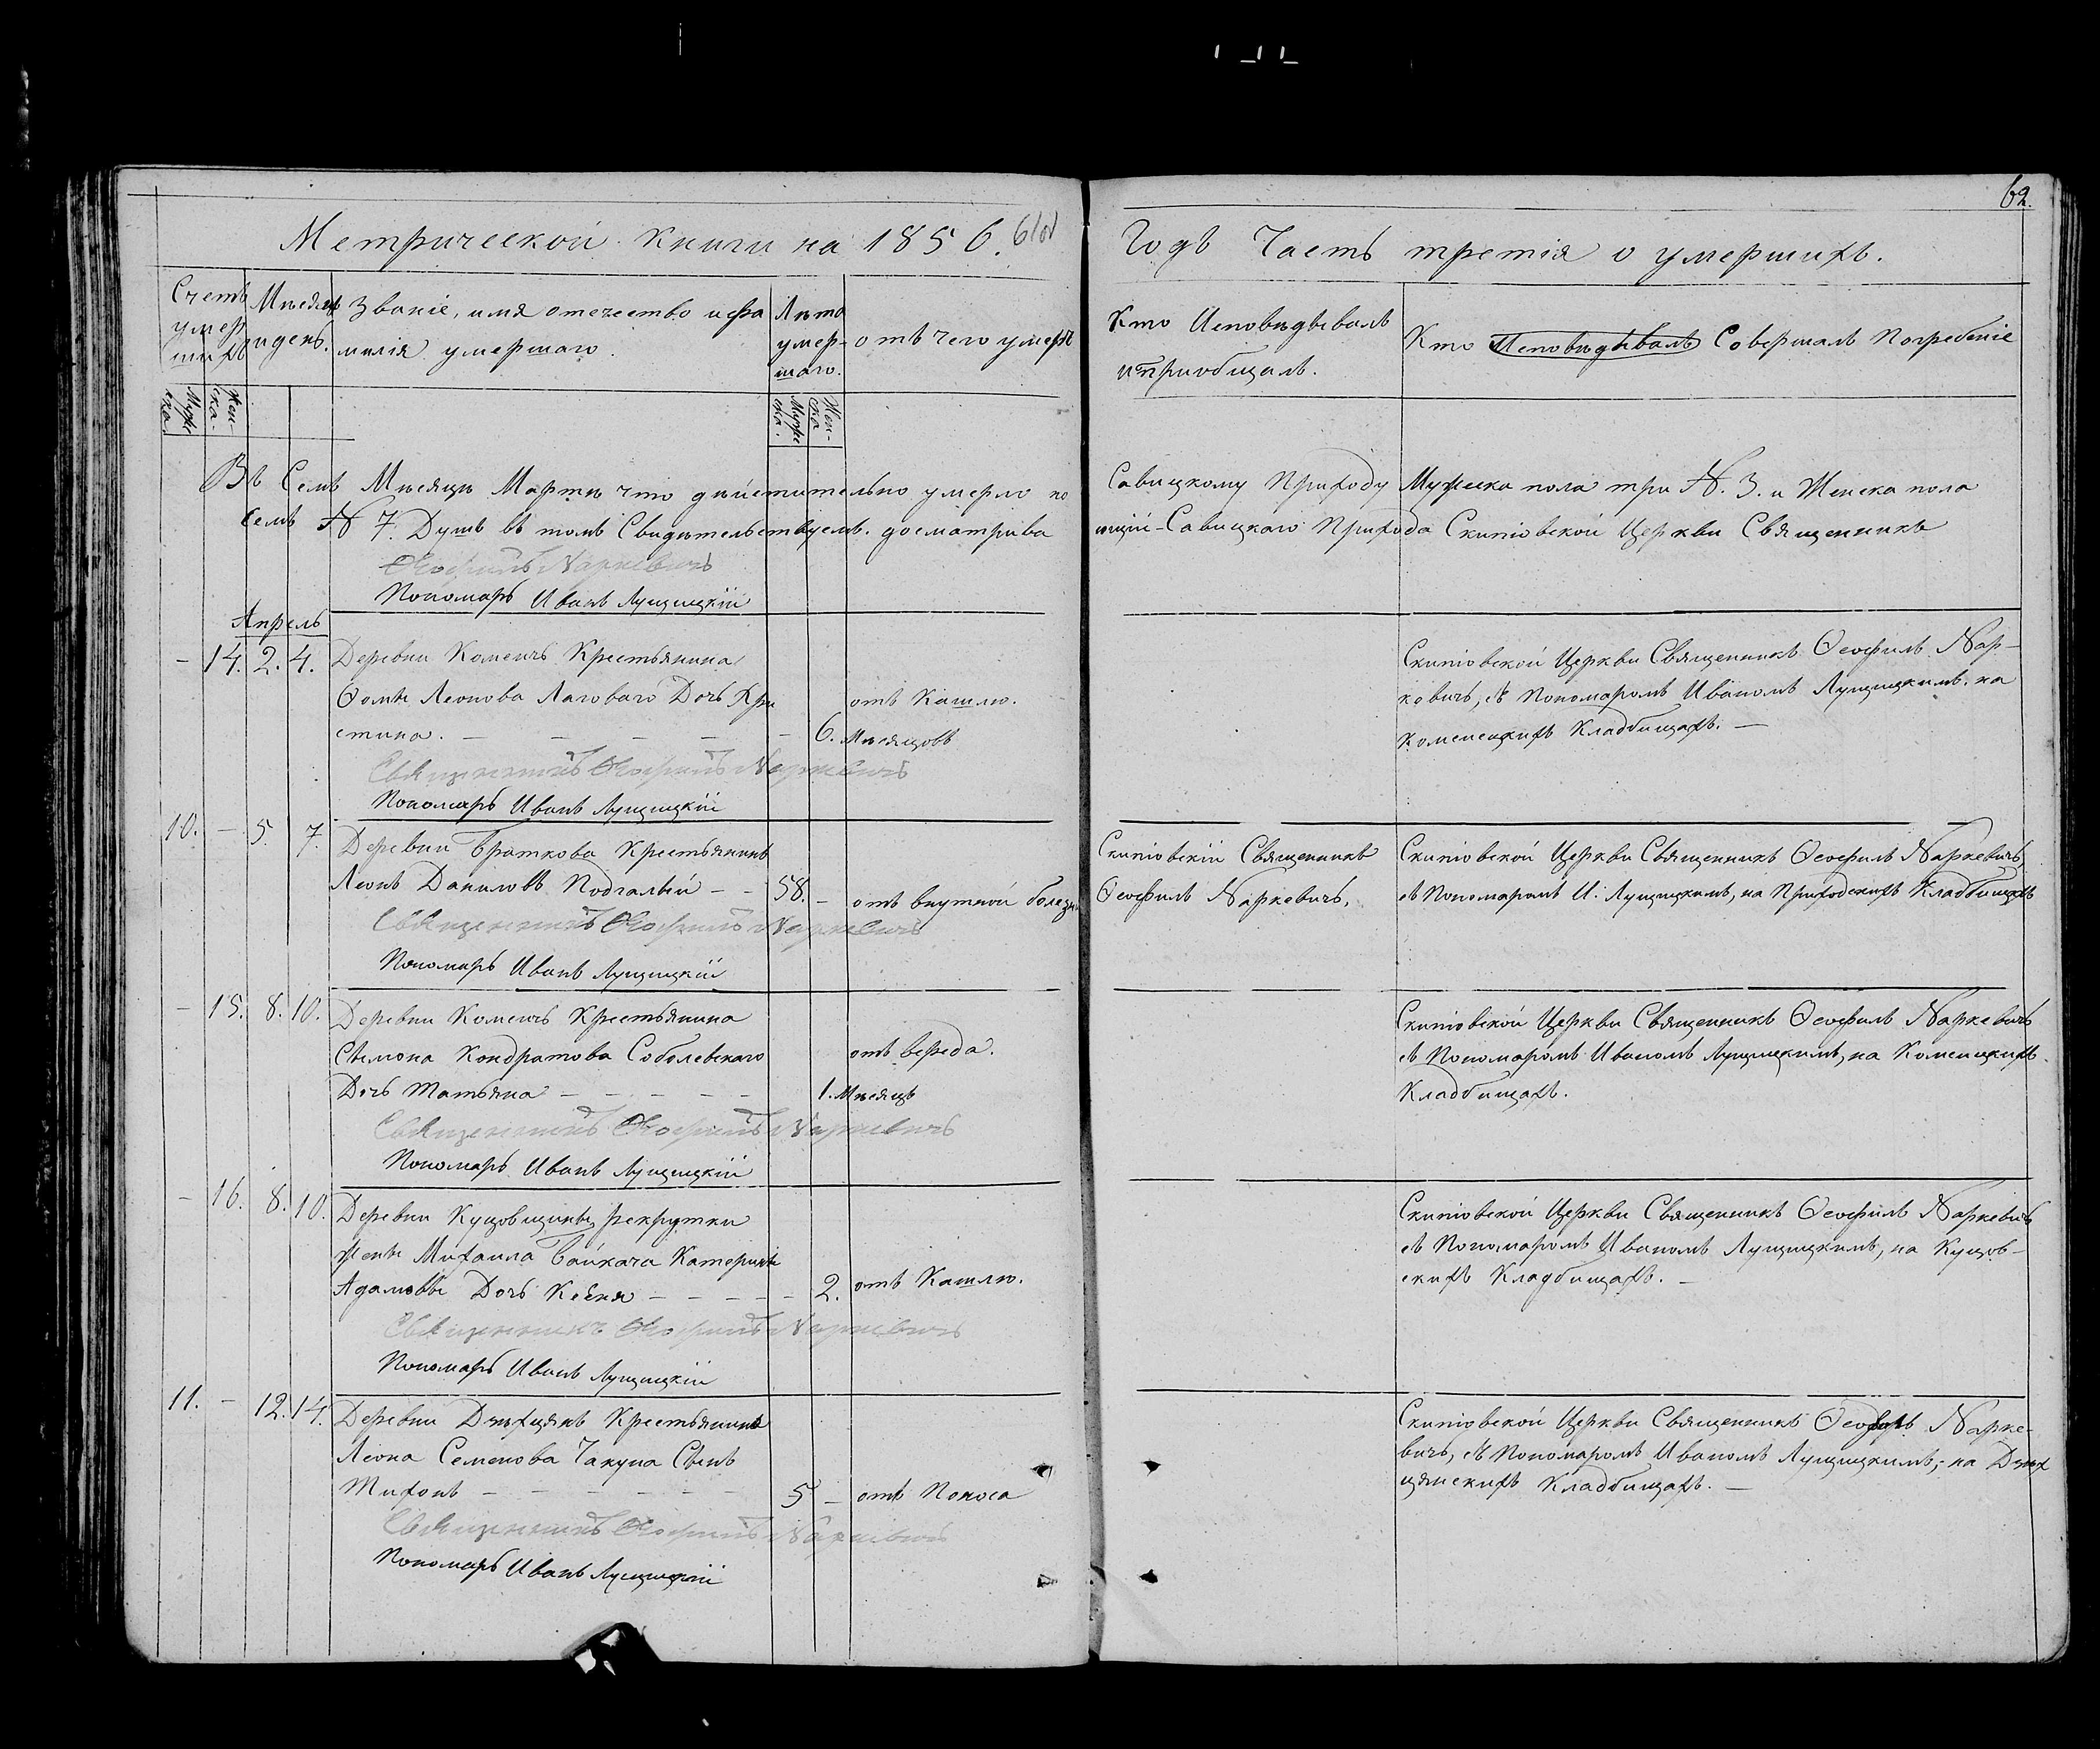 62.
Метрической книги на 1856. Годъ Часть третія о умершихъ.
Счетъ умершихъ
Мѣсяцъ и день.
Званіе, имя отечество и фамилія умершаго.
Лѣто умершаго.
отъ чего умеръ
Кто Исповѣдывалъ и пріобщалъ.
Кто Исповѣдывалъ Совершалъ Погребеніе
Мужеска. Женска.
Мужеска. Женска
Въ Семъ Мѣсяцѣ Мартѣ что дѣйстительно умерло по Савицкому Приходу Мужеска пола три №. 3. и Женска пола
семь № 7. Душъ въ томъ Свидѣтельствуемъ. досматрива ющій Савицкаго Прихода Скипіовской Церкви Священникъ
Ѳеофилъ Наркевичъ
Пономарь Иванъ Лущицкій
Апрель
— 14. 2. 4. Деревни Коменъ Крестьянина
Ѳомы Леонова Лаговаго Дочь Хри
стина. — — — — — 6. Мѣсяцовъ
отъ Кашлю.
Скипіовской Церкви Священникъ Ѳеофилъ Нар-
кевичъ, съ Пономаромъ Иваномъ Лущицкимъ. на
Коменецкихъ Кладбищахъ. —
Священникъ Ѳеофилъ Наркевичъ
Пономарь Иванъ Лущицкій
10. — 5. 7. Деревни Браткова Крестьянинъ
Леонъ Даниловъ Подгалый — — 58. — отъ внутной болезни
Скипіовскій Священникъ
Ѳеофилъ Наркевичъ.
Скипіовской Церкви Священникъ Ѳеофилъ Наркевичъ,
съ Пономаромъ И. Лущицкимъ, на Приходскихъ Кладбищахъ
Священникъ Ѳеофилъ Наркевичъ
Пономарь Иванъ Лущицкій
— 15. 8. 10. Деревни Коменъ Крестьянина
Сѣмона Кондратова Соболевскаго
Дочь Татьяна — — — — — 1. Мѣсяцъ
отъ вереда.
Скипіовской Церкви Священникъ Ѳеофилъ Наркевичъ
съ Пономаромъ Иваномъ Лущицкимъ, на Коменецкихъ
Кладбищахъ.
Священникъ Ѳеофилъ Наркевичъ
Пономарь Иванъ Лущицкій
— 16. 8. 10. Деревни Куцовщины, рекрутки
жены Михаила Байкача Катерины
Адамовы Дочь Ксеня — — — — — 2. отъ Кашлю.
Скипіовской Церкви Священникъ Ѳеофилъ Наркевичъ
съ Пономаромъ Иваномъ Лущицкимъ, на Куцов-
скихъ Кладбищахъ. —
Священникъ Ѳеофилъ Наркевичъ
Пономарь Иванъ Лущицкій
11. — 12. 14. Деревни Дѣхцянъ Крестьянина
Леона Семенова Чакуна Сынъ
Тихонъ — — — — — — 5 — отъ Поноса
Скипіовской Церкви Священникъ Ѳеофилъ Нарке-
вичъ, съ Пономаромъ Иваномъ Лущицкимъ, на Дѣх
цянскихъ Кладбищахъ. —
Священникъ Ѳеофилъ Наркевичъ
Пономарь Иванъ Лущицкій